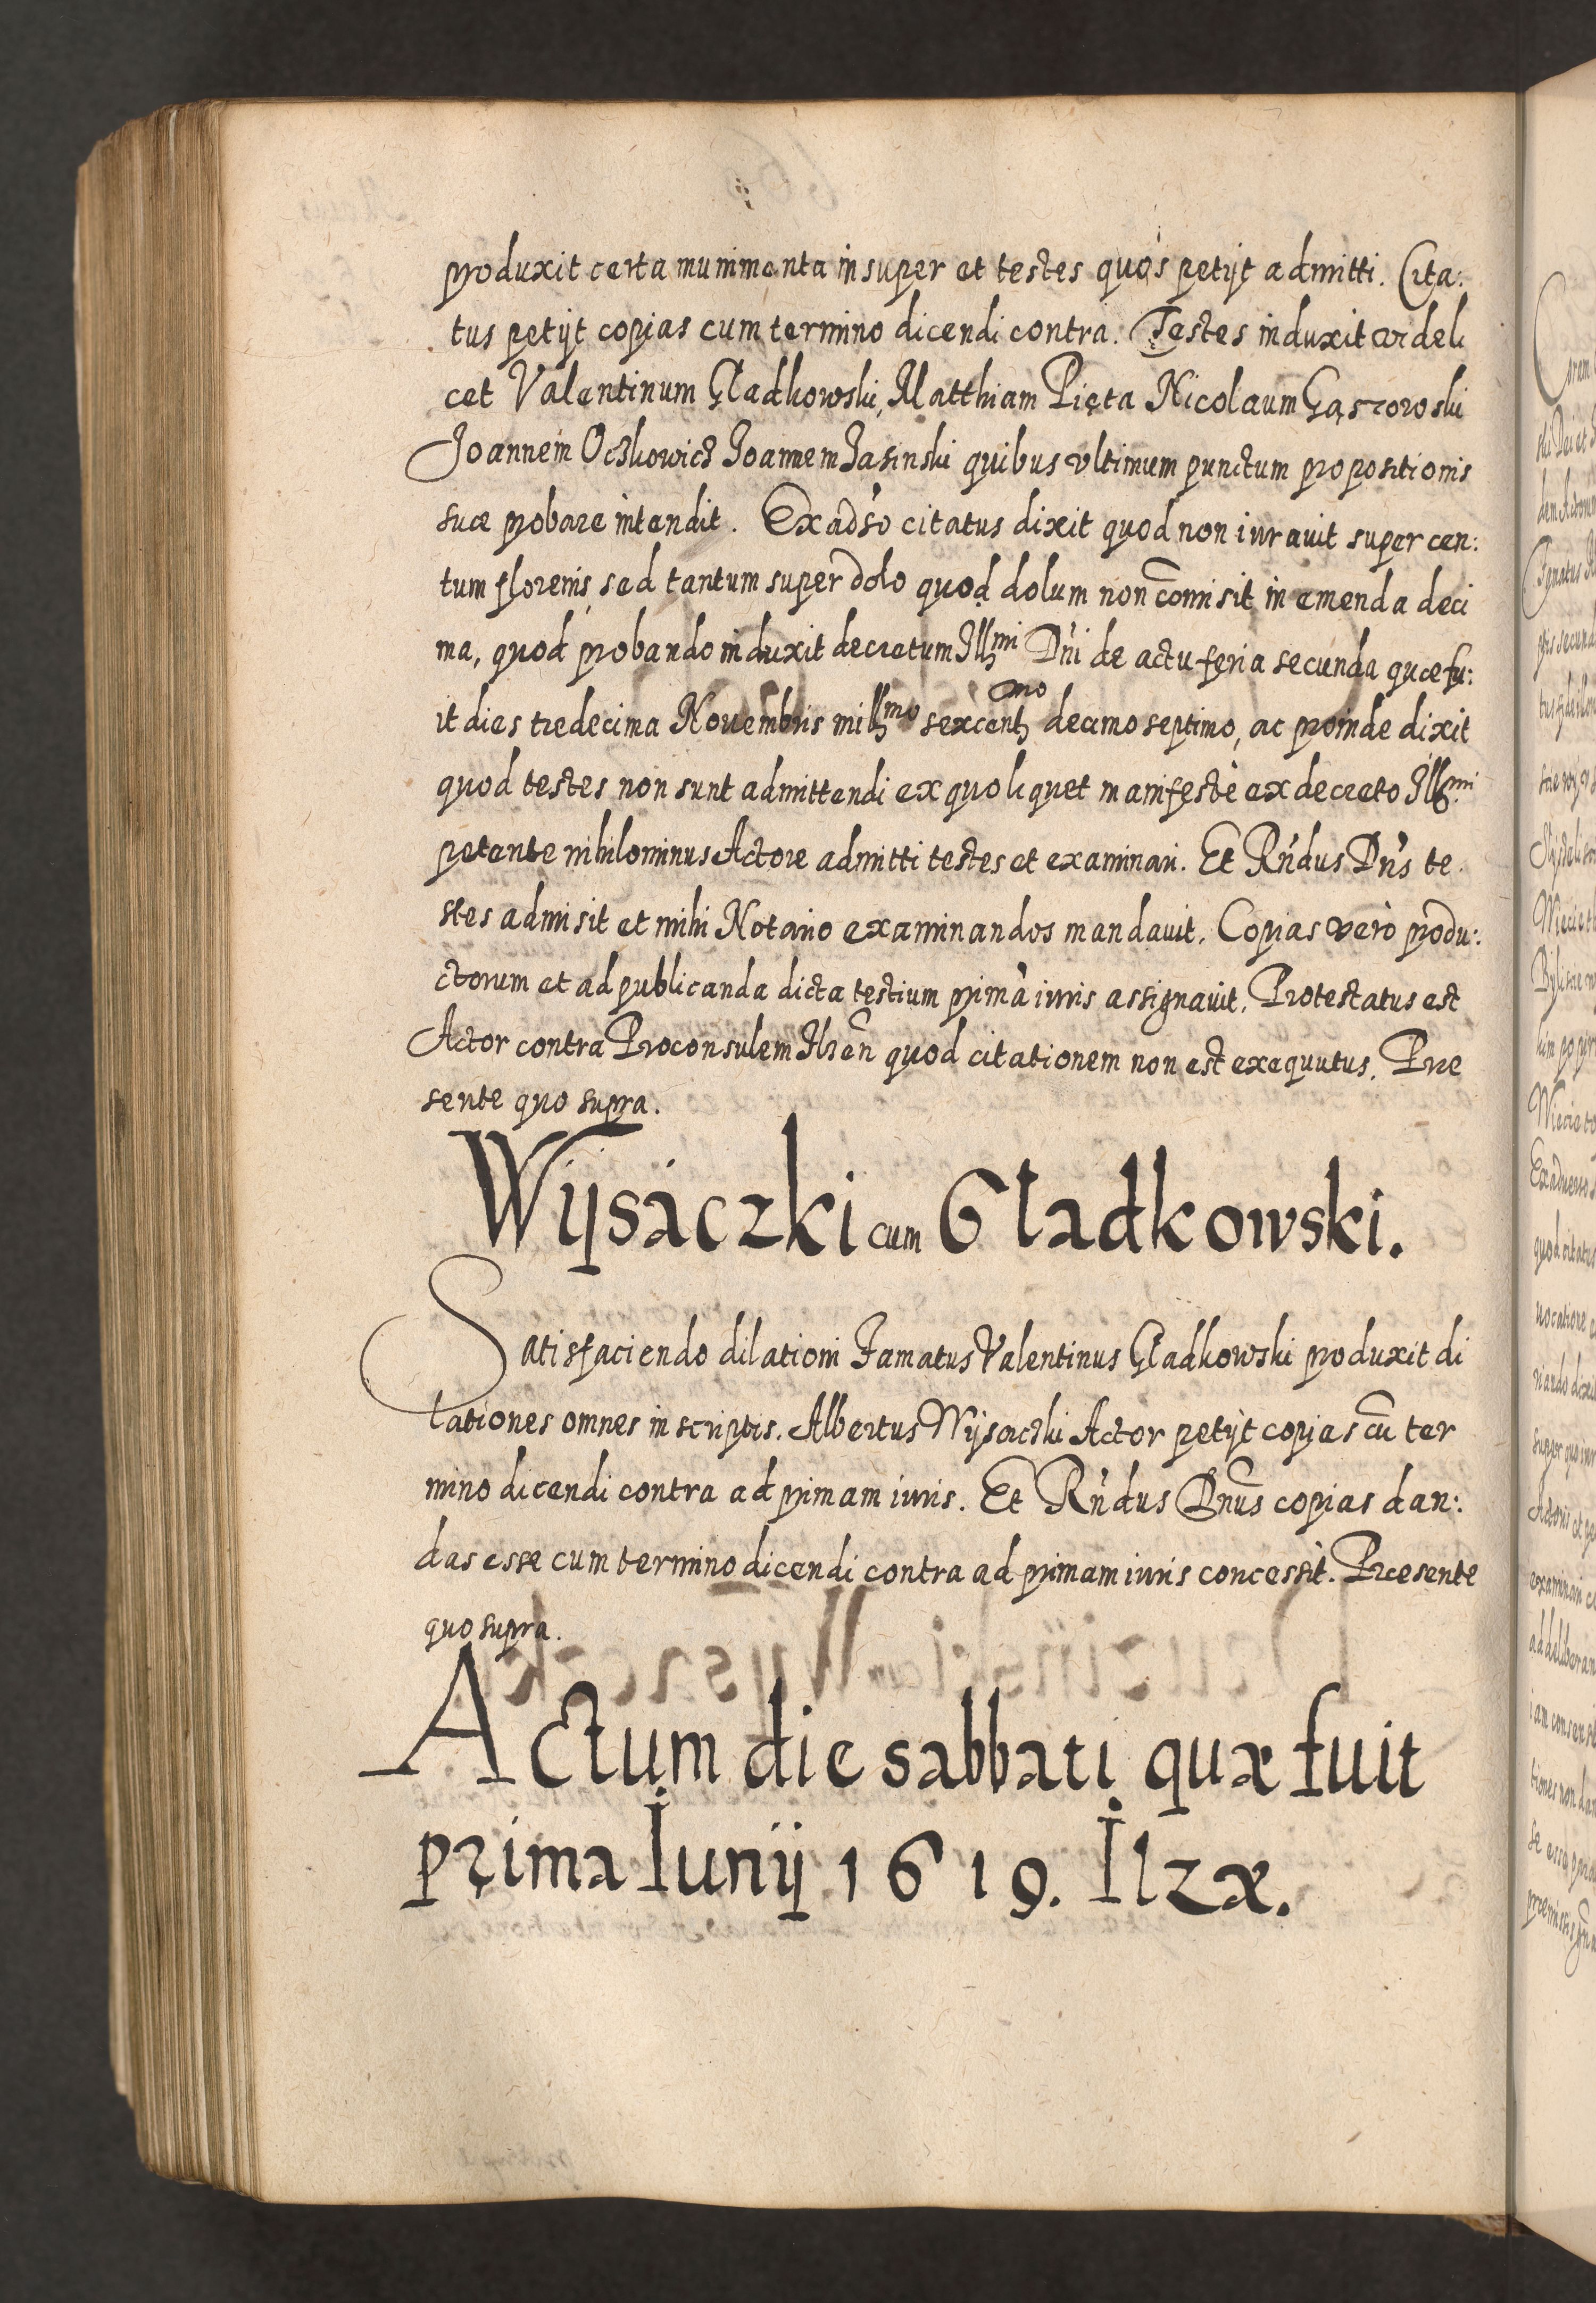 produxit certa munimenta insuper et testes quos petijt admitti. Cita:
tus petijt copias cum termino dicendi contra. Testes induxit videli
cet Valentinum Gładkowski, Matthiam Pięta Nicolaum Gąszorowski
Joannem Oczkowicz Joannem Jasinski quibus vltimum punctum propositionis
suæ probare intendit. Ex adso citatus dixit quod non iurauit super cen:
tum florenis sed tantum super dolo quod dolum non comisit in emenda deci
ma, quod probando induxit decretum Illmi Dni de actu feria secunda quæ fu:
it dies tredecima Nouembris millmo sexcentmo decimo septimo, ac proinde dixit
quod testes non sunt admittendi ex quo liquet manifestè ex decreto Illmi
petente nihilominus Actore admitti testes et examinari. Et Rndus Dns te
stes admisit et mihi Notario examinandos mandauit. Copias verò produ:
ctorum et ad publicanda dicta testium primâ iuris assignauit. Protestatus est
Actor contra Proconsulem Ilzen quod citationem non est exequutus. Præ
sente quo supra.
Wijsaczki cum Gładkowski.
Satisfaciendo dilationi Famatus Valentinus Gładkowski produxit di
lationes omnes in scriptis. Albertus Wijsaczki Actor petijt copias cu ter
mino dicendi contra ad primam iuris. Et Rndus Dnus copias dan:
das esse cum termino dicendi contra ad primam iuris concessit. Præsente
quo supra.
Actum die sabbati quæ fuit
prima Iunij 1619. Ilzæ.